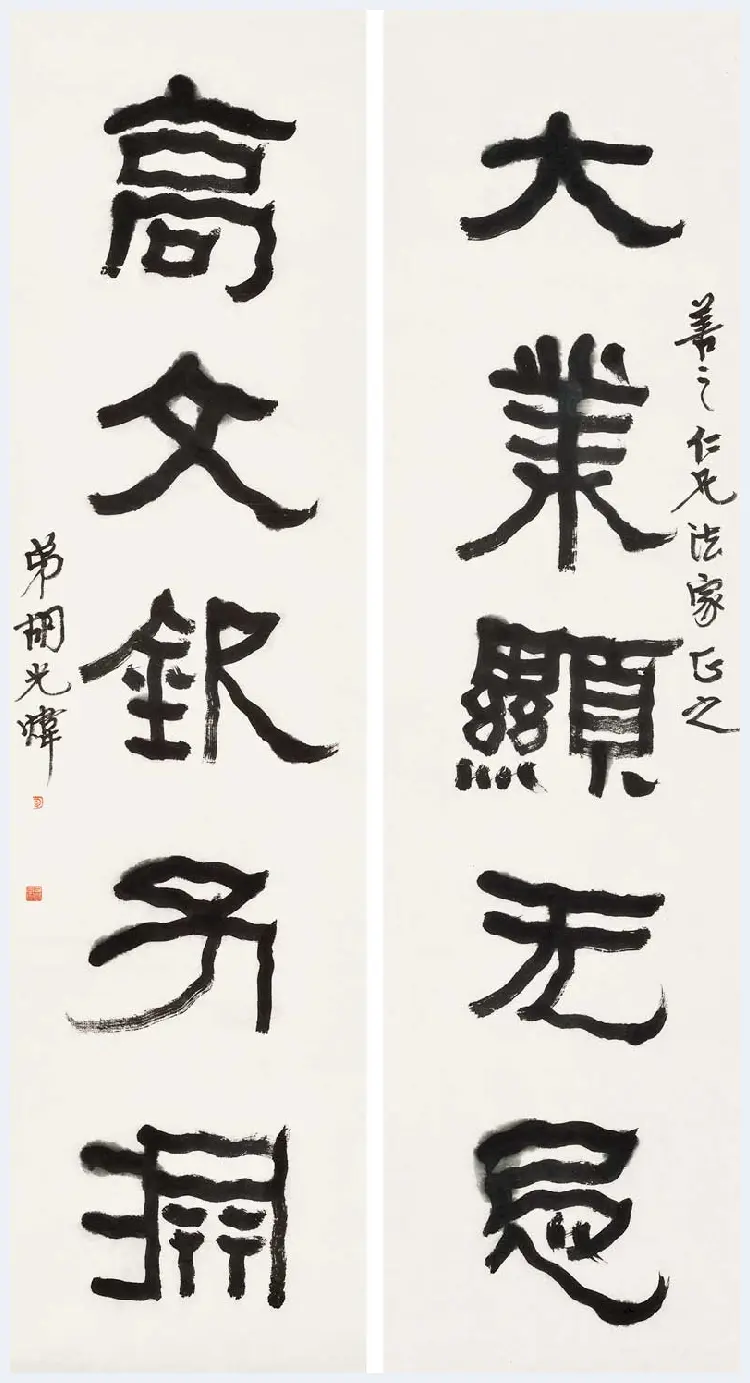 大業顯无忌
善之仁兄法家正之
高文
弟胡光煒